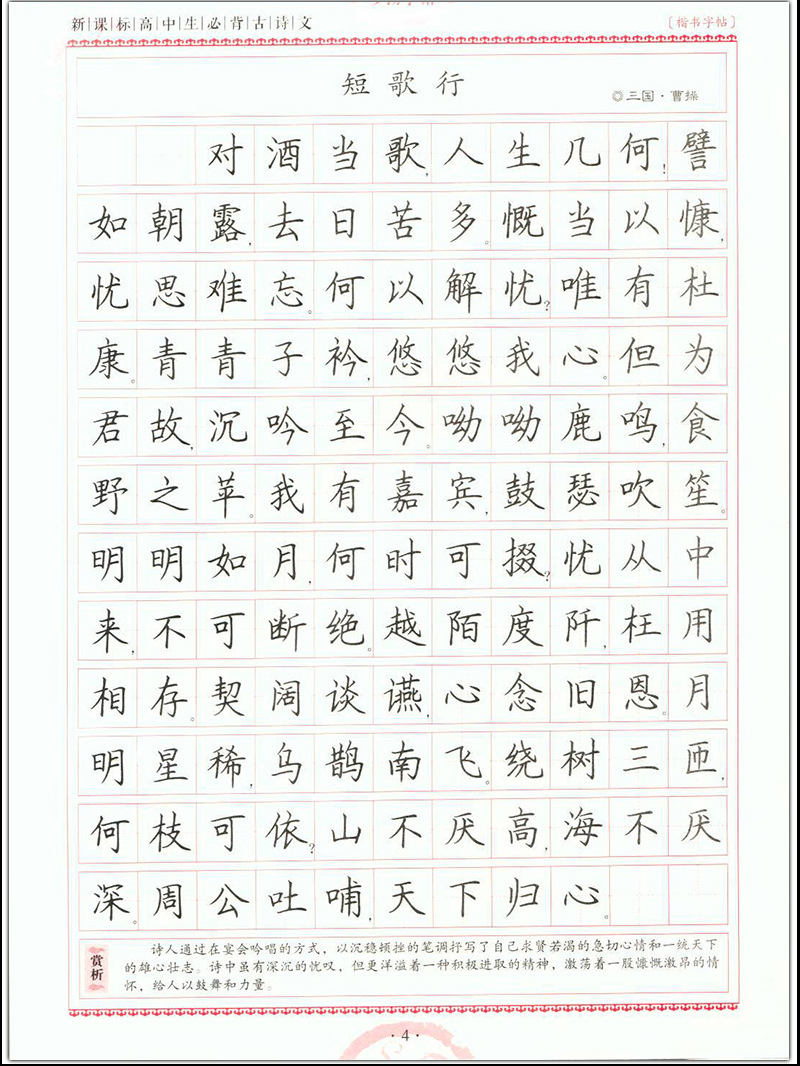 新|课|标|高|中|生|必|背|古|诗|文
[楷书字帖]
短歌行
◎三国·曹操
对酒当歌，人生几何！譬
如朝露，去日苦多。慨当以慷，
忧思难忘。何以解忧？唯有杜
康。青青子衿，悠悠我心。但为
君故，沉吟至今。呦呦鹿鸣，食
野之苹。我有嘉宾，鼓瑟吹笙。
明明如月，何时可掇？忧从中
来，不可断绝。越陌度阡，枉用
相存。契阔谈䜩，心念旧恩。月
明星稀，乌鹊南飞。绕树三匝，
何枝可依？山不厌高，海不厌
深。周公吐哺，天下归心。
赏析
诗人通过在宴会吟唱的方式，以沉稳顿挫的笔调抒写了自己求贤若渴的急切心情和一统天下
的雄心壮志。诗中虽有深沉的忧叹，但更洋溢着一种积极进取的精神，激荡着一股慷慨激昂的情
怀，给人以鼓舞和力量。
·4·